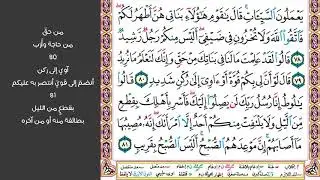 من حق
من حاجة وأرب
80
آوي إلى ركن
أنضم إلى قوي أنتصر به عليكم
81
بقطع من الليل
بطائفة منه أو من آخره
يَعْمَلُونَ ٱلسَّيِّـَٔاتِ قَالَ يَـٰقَوْمِ هَـٰٓؤُلَآءِ بَنَاتِى هُنَّ أَطْهَرُ لَكُمْ
فَٱتَّقُوا۟ ٱللَّهَ وَلَا تُخْزُونِ فِى ضَيْفِىٓ أَلَيْسَ مِنكُمْ رَجُلٌ رَّشِيدٌ ٧٨
قَالُوا۟ لَقَدْ عَلِمْتَ مَا لَنَا فِى بَنَاتِكَ مِنْ حَقٍّ وَإِنَّكَ لَتَعْلَمُ مَا نُرِيدُ
٧٩ قَالَ لَوْ أَنَّ لِى بِكُمْ قُوَّةً أَوْ ءَاوِىٓ إِلَىٰ رُكْنٍ شَدِيدٍ ٨٠ قَالُوا۟
يَـٰلُوطُ إِنَّا رُسُلُ رَبِّكَ لَن يَصِلُوٓا۟ إِلَيْكَ فَأَسْرِ بِأَهْلِكَ بِقِطْعٍ
مِّنَ ٱلَّيْلِ وَلَا يَلْتَفِتْ مِنكُمْ أَحَدٌ إِلَّا ٱمْرَأَتَكَ إِنَّهُۥ مُصِيبُهَا
مَآ أَصَابَهُمْ إِنَّ مَوْعِدَهُمُ ٱلصُّبْحُ أَلَيْسَ ٱلصُّبْحُ بِقَرِيبٍ ٨١